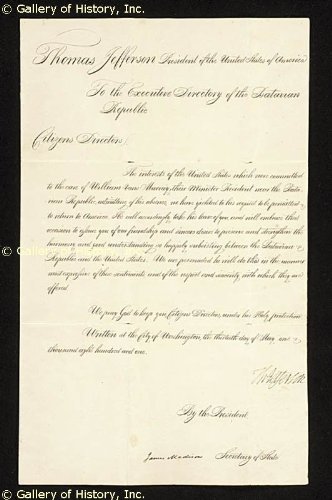 © Gallery of History, Inc.
Thomas Jefferson President of the United States of America
To the Executive Directory of the Batavian
Republic
Citizens Directors,
The interests of the United States which were committed
to the care of William Vans Murray, their Minister Resident near the Bata-
vian Republic, admitting of his absence, we have yielded to his request to be permitted
to return to America. He will accordingly take his leave of you and will embrace that
occasion to assure you of our friendship and sincere desire to preserve and strengthen the
harmony and good understanding so happily subsisting between the Batavian
Republic and the United States. We are persuaded he will do this in the manner
most expressive of these sentiments and of the respect and sincerity with which they are
offered.
We pray God to keep you, Citizens Directors, under his Holy protection
Written at the city of Washington, the thirtieth day of May one
thousand eight hundred and one.
Th Jefferson
By the President
James Madison Secretary of State
© Gallery of History, Inc.
© Gallery of History, Inc.
© Gallery of History, Inc.
© Gallery of History, Inc.